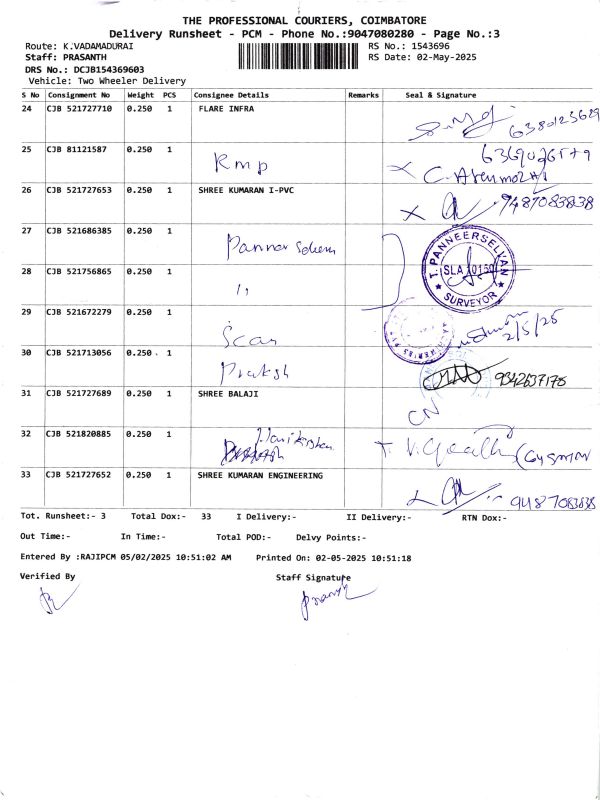 THE PROFESSIONAL COURIERS, COIMBATORE
Delivery Runsheet - PCM - Phone No.:9047080280 - Page No.:3
Route: K.VADAMADURAI
RS No.: 1543696
Staff: PRASANTH
RS Date: 02-May-2025
DRS No.: DCJB154369603
Vehicle: Two Wheeler Delivery
S No Consignment No Weight PCS Consignee Details Remarks Seal & Signature
24 CJB 521727710 0.250 1 FLARE INFRA
6380123629
25 CJB 81121587 0.250 1
Rmp
26 CJB 521727653 0.250 1 SHREE KUMARAN I-PVC
9487083838
27 CJB 521686385 0.250 1
Panner
T. PANNEERSELVAN
SLA
SURVEYOR
28 CJB 521756865 0.250 1
"
29 CJB 521672279 0.250 1
Scan
2/5/25
30 CJB 521713056 0.250 1
Prakash
9342637178
31 CJB 521727689 0.250 1 SHREE BALAJI
CN
32 CJB 521820885 0.250 1
Harikrishan
33 CJB 521727652 0.250 1 SHREE KUMARAN ENGINEERING
9487083838
Tot. Runsheet:- 3 Total Dox:- 33 I Delivery:- II Delivery:- RTN Dox:-
Out Time:- In Time:- Total POD:- Delvy Points:-
Entered By :RAJIPCM 05/02/2025 10:51:02 AM Printed On: 02-05-2025 10:51:18
Verified By Staff Signature